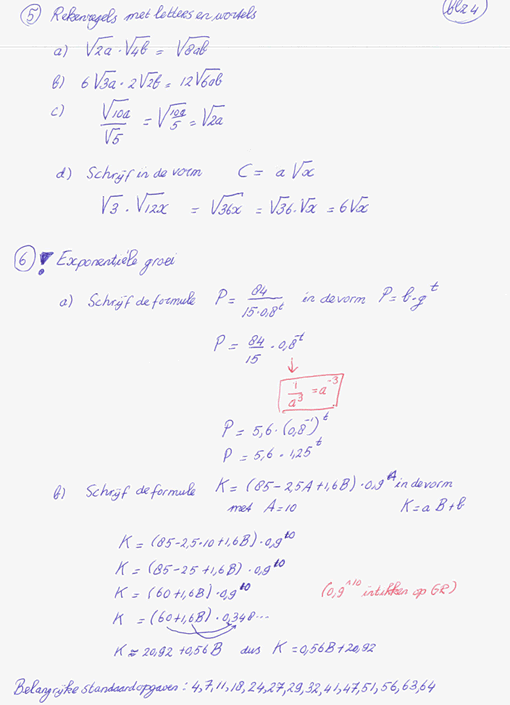 blz 4
5 Rekenregels met letters en wortels
a) √2a · √4b = √8ab
b) 6√3a · 2√2b = 12√6ab
c) √10a / √5 = √(10a/5) = √2a
d) Schrijf in de vorm C = a√x
√3 · √12x = √36x = √36 · √x = 6√x
6 ! Exponentiële groei
a) Schrijf de formule P = 84 / (15·0,8^t) in de vorm P = b·g^t
P = 84/15 · 0,8^-t
↓
1/a³ = a^-3
P = 5,6 · (0,8^-1)^t
P = 5,6 · 1,25^t
b) Schrijf de formule K = (85 - 2,5A + 1,6B) · 0,9^A in de vorm
met A = 10 K = aB + b
K = (85 - 2,5·10 + 1,6B) · 0,9^10
K = (85 - 25 + 1,6B) · 0,9^10
K = (60 + 1,6B) · 0,9^10 (0,9^10 intikken op GR)
K = (60 + 1,6B) · 0,348...
K ≈ 20,92 + 0,56B dus K = 0,56B + 20,92
Belangrijke standaardopgaven: 4, 7, 11, 18, 24, 27, 29, 32, 41, 47, 51, 56, 63, 64